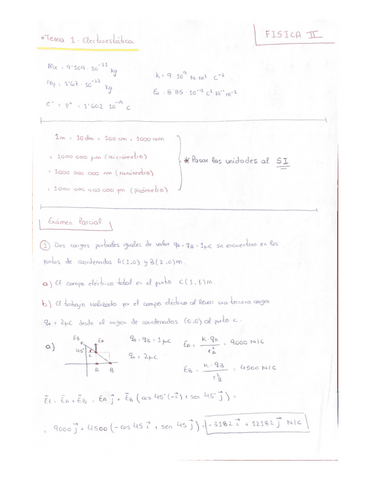 • Tema 1 - Electrostática
FÍSICA II
Me = 9'109 · 10⁻³¹ kg
mp = 1'67 · 10⁻²⁷ kg
e⁻ = p⁺ = 1'602 10⁻¹⁹ C
K = 9 · 10⁹ N·m² · C⁻²
1m = 10 dm = 100 cm = 1000 mm
= 1000 000 μm (micrómetro)
= 1000 000 000 nm (nanómetro)
= 1000 000 000 000 pm (picómetro)
* Pasar las unidades al SI
Exámen Parcial
① Dos cargas puntuales iguales de valor qA = qB = 1μC se encuentran en los
puntos de coordenadas A(1,0) y B(2,0)m.
a) El campo eléctrico total en el punto C(1,1)m
b) El trabajo realizado por el campo eléctrico al llevar una tercera carga
q3 = 2μC desde el origen de coordenadas (0,0) al punto C.
a)
EB
EA
45°
A B
qA = qB = 1μC
EA = K · qA / rA² = 9000 N/C
EB = K · qB / rB² = 4500 N/C
Et = EA + EB = EA j + EB (cos 45° (-i) + sen 45° j) =
= 9000 j + 4500 (-cos 45 i + sen 45 j) = -3182 i + 12182 j N/C